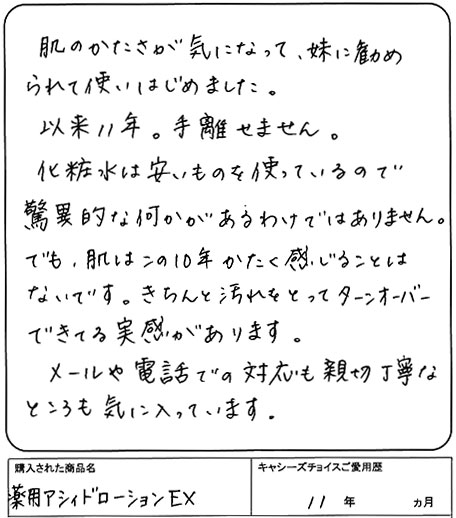 肌のかたさが気になって、妹に勧め
られて使いはじめました。
以来11年。手離せません。
化粧水は安いものを使っているので
驚異的な何かがあるわけではありません。
でも、肌はこの10年かたく感じることは
ないです。きちんと汚れをとってターンオーバー
できてる実感があります。
メールや電話での対応も親切丁寧な
ところも気に入っています。
購入された商品名
薬用アシィドローションEX
キャシーズチョイスご愛用歴
11年 ヵ月